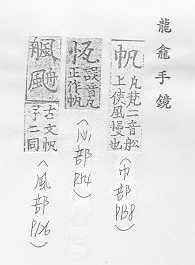 龍龕手鏡
帆
凡梵二音舩
上使風幔也
(巾部P138)
誤音凡
正作帆
(心部
古文帆
字二同
(風部P126)